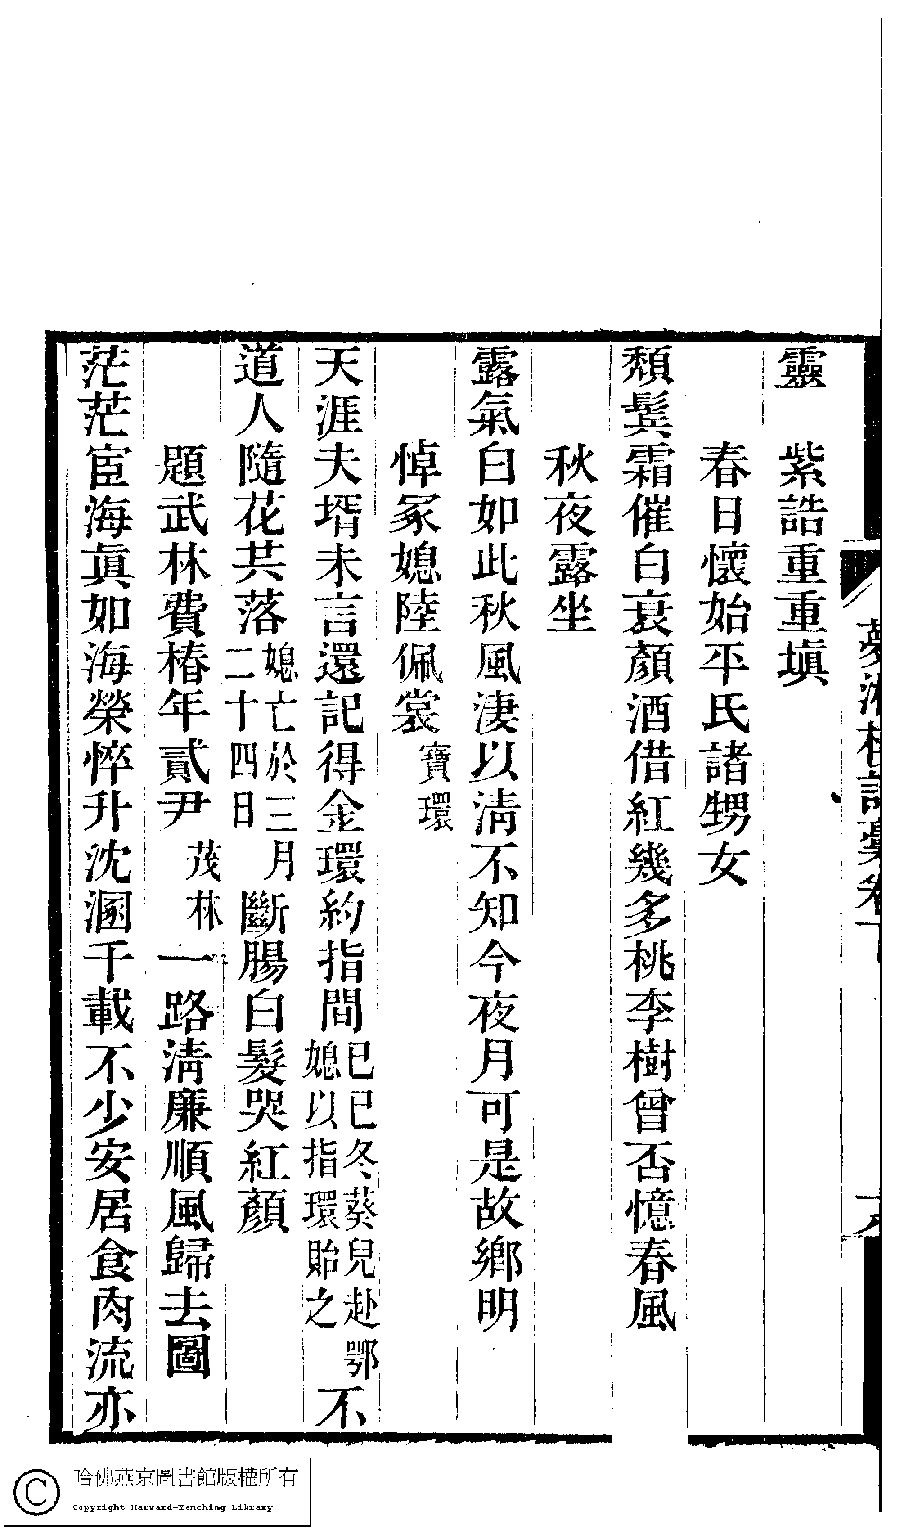 夢湘樓詩稾卷下
靈　紫誥重重塡
春日懷始平氏諸甥女
頹鬓霜催白衰顏酒借紅幾多桃李樹曾否憶春風
秋夜露坐
露氣白如此秋風淒以淸不知今夜月可是故鄉明
悼冢媳陸佩裳寶環
天涯夫壻未言還記得金環約指間已巳冬葵兒赴鄂媳以指環貽之不
道人隨花共落媳亡於三月二十四日斷腸白髮哭紅顏
題武林費椿年貳尹茂林一路淸廉順風歸去圖
茫茫宦海眞如海榮悴升沈溷千載不少安居食肉流亦
哈佛燕京圖書館版權所有
Copyright Harvard-Yenching Library